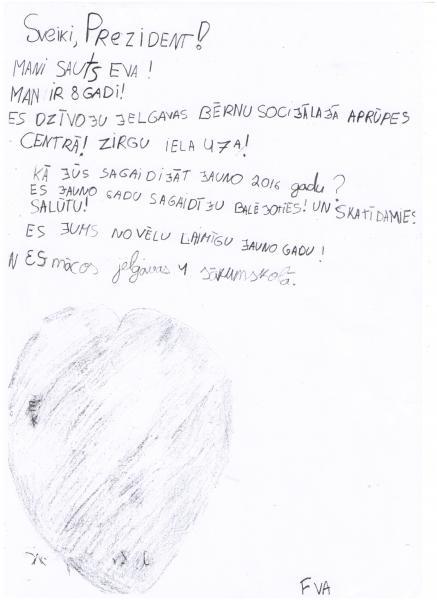 Sveiki, PREZIDENT!
MANI SAUTS EVA!
MAN IR 8 GADI!
ES DZĪVOJU JELGAVAS BĒRNU SOCIJĀLAJĀ APRŪPES
CENTRĀ! ZIRGU IELA 47A!
KĀ JŪS SAGAIDIJĀT JAUNO 2016 gadu?
ES JAUNO GADU SAGAIDĪJU BALĒJOTIES! UN SKATĪDAMIES
SALŪTU!
ES JUMS NOVĒLU LAIMĪGU JAUNO GADU!
ES mācos jelgavas 4 sākumskolā.
EVA